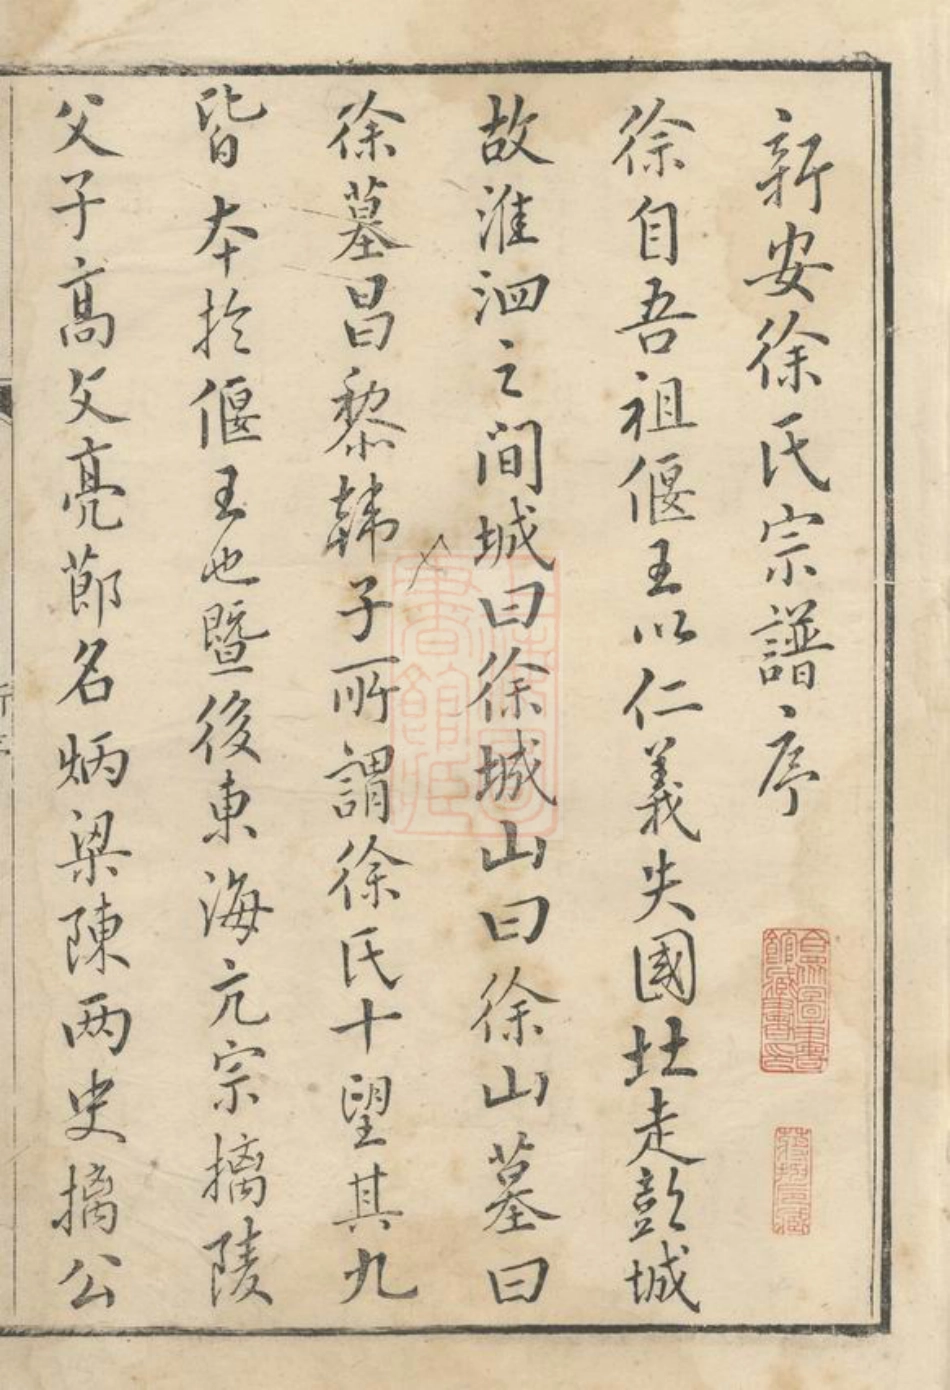 新安徐氏宗譜序
徐自吾祖偃王以仁義失國北走彭城
故淮泗之間城曰徐城山曰徐山墓曰
徐墓昌黎韓子所謂徐氏十望其九
皆本於偃王也暨後東海亢宗摛陵
父子高文亮節名炳梁陳兩史摛公